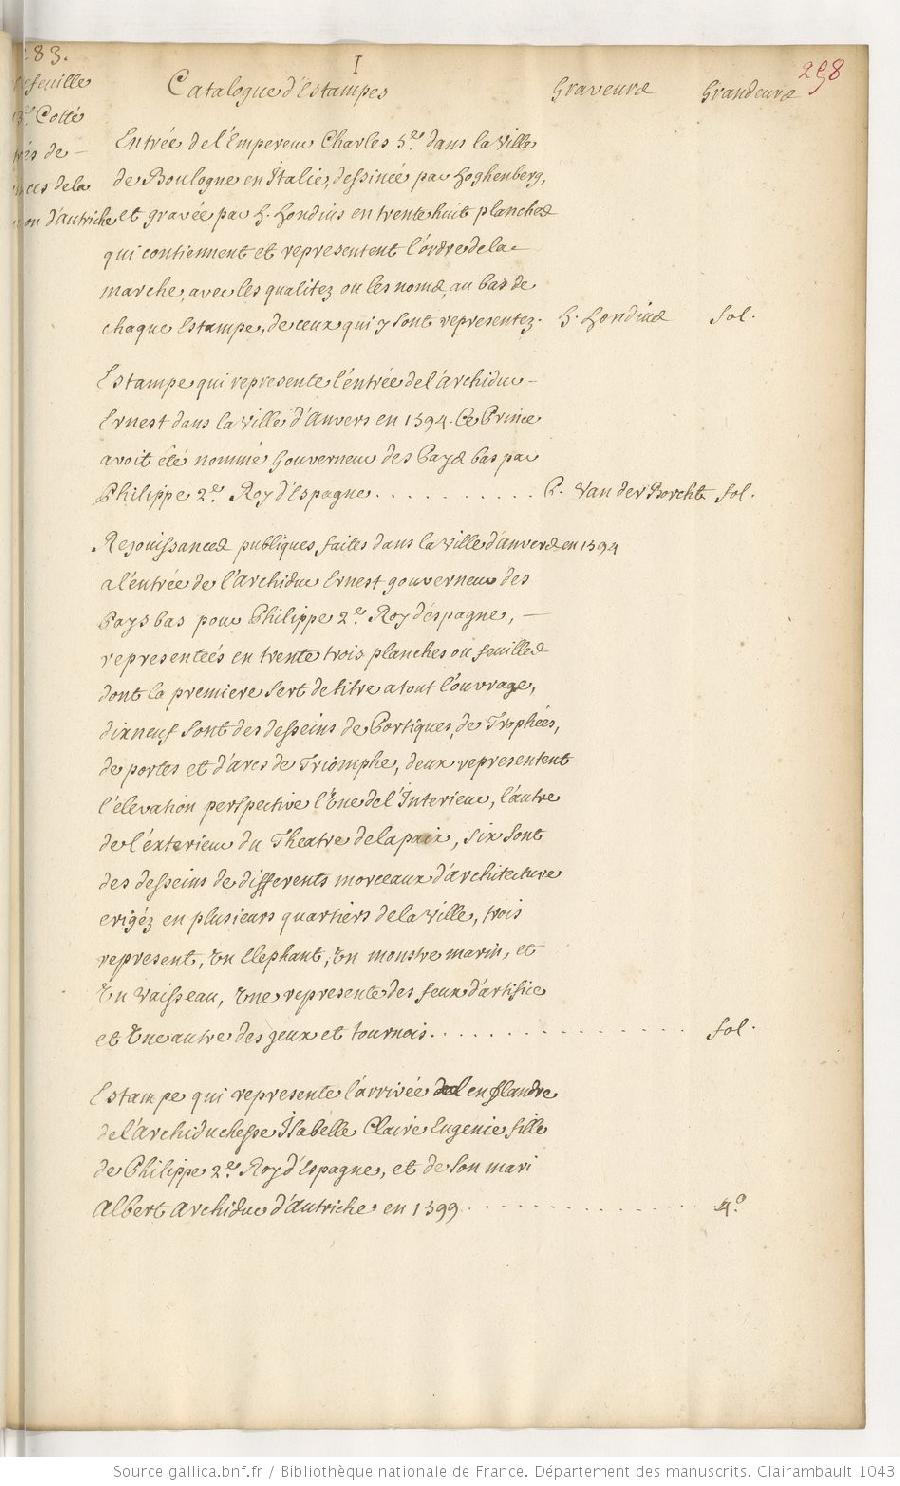 283.
I
298
Catalogue d'Estampes Graveurs Grandeurs
Cotté
de -
de la
d'autriche
Entrée de l'Empereur Charles 5.e dans la Ville
de Boulogne en Italie, dessinée par hoghenberg,
et gravée par h. hondius en trente huit planches
qui contiennent et representent l'ordre de la -
marche, avec les qualitez ou les noms, au bas de
chaque Estampe, de ceux qui y sont representez. h. hondius fol.
Estampe qui represente l'entrée de l'archiduc -
Ernest dans la Ville d'Anvers en 1594. Ce Prince
avoit été nommé Gouverneur des Pays bas par
Philippe 2.e Roy d'Espagne . . . . . . . . . . P. Van der Borcht fol.
Rejouissances publiques, faites dans la Ville d'anvers en 1594
a l'entrée de l'archiduc Ernest gouverneur des
Pays bas pour Philippe 2.e Roy d'espagne, -
representeés en trente trois planches ou feuilles
dont la premiere sert de titre a tout l'ouvrage,
dix neuf sont des desseins de Portiques, de Trophées,
de portes et d'arcs de Triomphe, deux representent
l'elevation perspective l'Une de l'Interieur, l'autre
de l'exterieur du Theatre de la paix, six sont
des desseins de differents morceaux d'architecture
erigéz en plusieurs quartiers de la Ville, trois
represent, Un Elephant, Un monstre marin, et
Un Vaisseau, Une represente des feux d'artifice
et Une autre des jeux et tournois. . . . . . . . . . . . . . . fol.
Estampe qui represente l'arrivée en flandre
de l'archiduchesse Isabelle Claire Eugenie fille
de Philippe 2.e Roy d'Espagne, et de son mari
Albert Archiduc d'autriche en 1599 . . . . . . . . . . . . . . 4.o
Source gallica.bnf.fr / Bibliothèque nationale de France. Département des manuscrits. Clairambault 1043